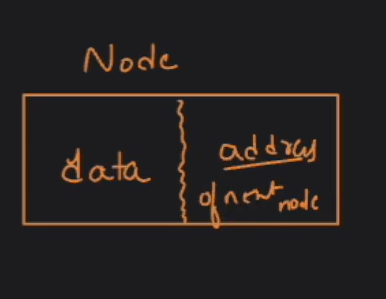 Node
data
address
of next node